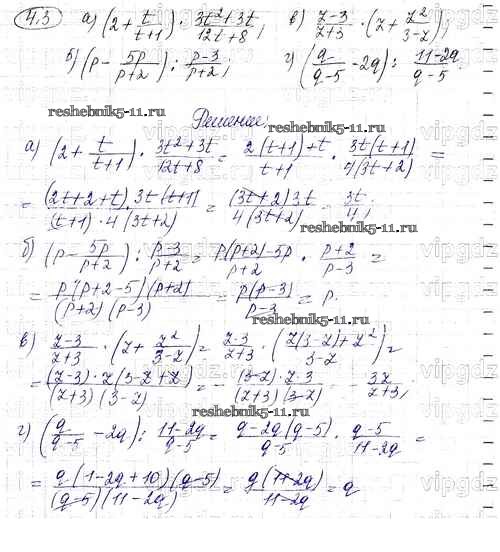 4.3 а) (2 + t/(t+1)) · (3t²+3t)/(12t+8); в) (z-3)/(z+3) · (z + z²/(3-z));
б) (p - 5p/(p+2)) : (p-3)/(p+2); г) (q/(q-5) - 2q) : (11-2q)/(q-5).
reshebnik5-11.ru
reshebnik5-11.ru
Решение:
а) (2 + t/(t+1)) · (3t²+3t)/(12t+8) = (2(t+1)+t)/(t+1) · 3t(t+1)/4(3t+2) =
= (2t+2+t) · 3t(t+1)/(t+1) · 4(3t+2) = (3t+2)3t/4(3t+2) = 3t/4;
б) (p - 5p/(p+2)) : (p-3)/(p+2) = (p(p+2)-5p)/(p+2) · (p+2)/(p-3) =
= p(p+2-5)(p+2)/(p+2)(p-3) = p(p-3)/(p-3) = p.
reshebnik5-11.ru
в) (z-3)/(z+3) · (z + z²/(3-z)) = (z-3)/(z+3) · (z(3-z)+z²)/(3-z) =
= (z-3) · z(3-z+z)/(z+3)(3-z) = - (3-z) · z · 3/(z+3)(3-z) = - 3z/(z+3);
reshebnik5-11.ru
г) (q/(q-5) - 2q) : (11-2q)/(q-5) = (q-2q(q-5))/(q-5) · (q-5)/(11-2q) =
= q(1-2q+10)(q-5)/(q-5)(11-2q) = q(11-2q)/(11-2q) = q